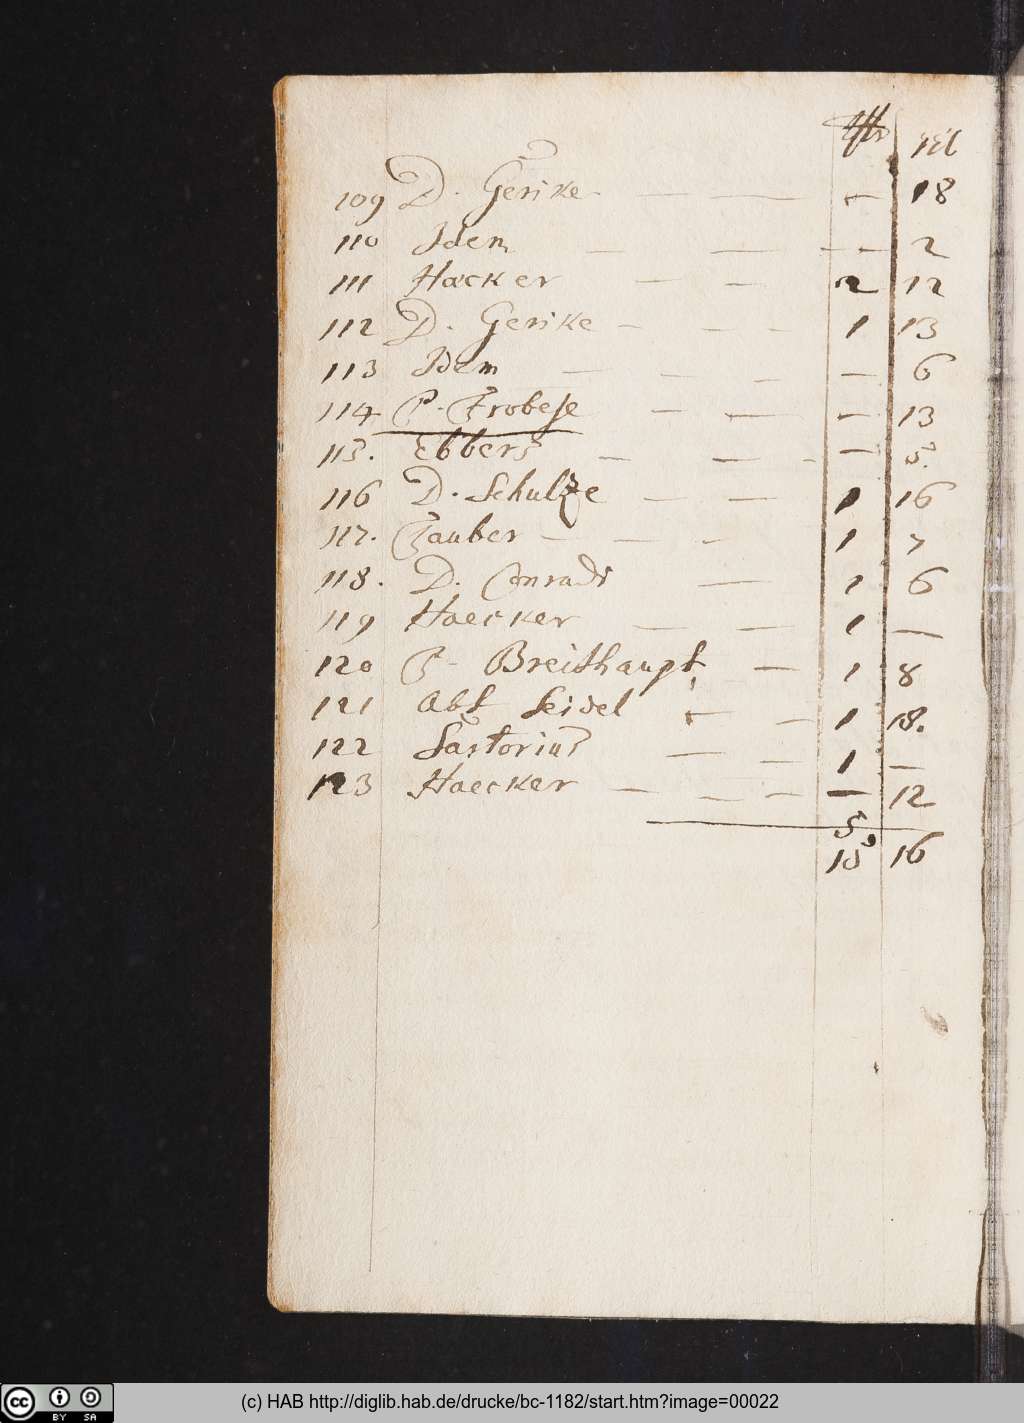 109 D. Gerike — — — 18
110 Idem — — — — 2
111 Haecker — — 2 12
112 D. Gerike — — — 1 13
113 Idem — — — — 6
114 P. Frobese — — — 13
115. Ebbers — — - — 5.
116 D. Schulze — — 1 16
117. Tauber — — — 1 7
118. D. Conradi — 1 6
119 Haecker — — 1 —
120 P- Breithaupt — 1 8
121 Abt Seidel — — 1 18.
122 Sartorius — — 1 —
123 Haecker — — — — 12
5
16
(c) HAB http://diglib.hab.de/drucke/bc-1182/start.htm?image=00022
cc BY SA